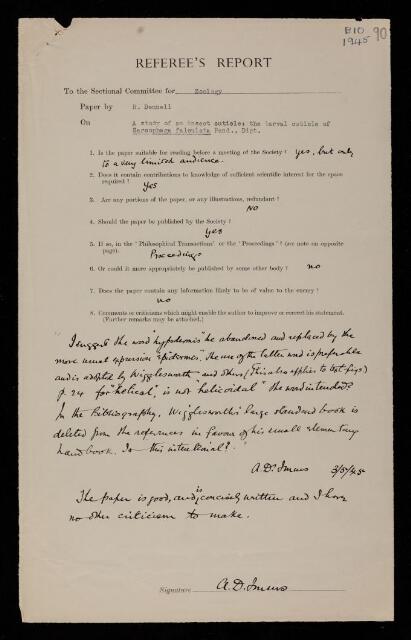 B10
1945
90
REFEREE'S REPORT
To the Sectional Committee for Zoology
Paper by R. Dennell
On A study of an insect cuticle: the larval cuticle of
Sarcophaga falculata Pand., Dipt.
1. Is the paper suitable for reading before a meeting of the Society? yes, but only
to a very limited audience.
2. Does it contain contributions to knowledge of sufficient scientific interest for the space
required? Yes
3. Are any portions of the paper, or any illustrations, redundant?
No
4. Should the paper be published by the Society?
yes
5. If so, in the 'Philosophical Transactions' or the 'Proceedings'? (see note on opposite
page). Proceedings
6. Or could it more appropriately be published by some other body? no
7. Does the paper contain any information likely to be of value to the enemy?
no
8. Comments or criticisms which might enable the author to improve or correct his statement.
(Further remarks may be attached.)
I suggest the word "hypodermis" be abandoned and replaced by the
more usual expression "epidermis". The use of the latter word is preferable
and is adopted by Wigglesworth and others (This also applies to text figs)
p. 24 for "helical", is not "helicoidal" the word intended?
In the Bibliography, Wigglesworth's large standard book is
deleted from the references in favour of his small elementary
handbook. Is this intentional?
A.D. Imms 3/5/45
The paper is good, and is concisely written and I have
no other criticism to make.
Signature A.D. Imms